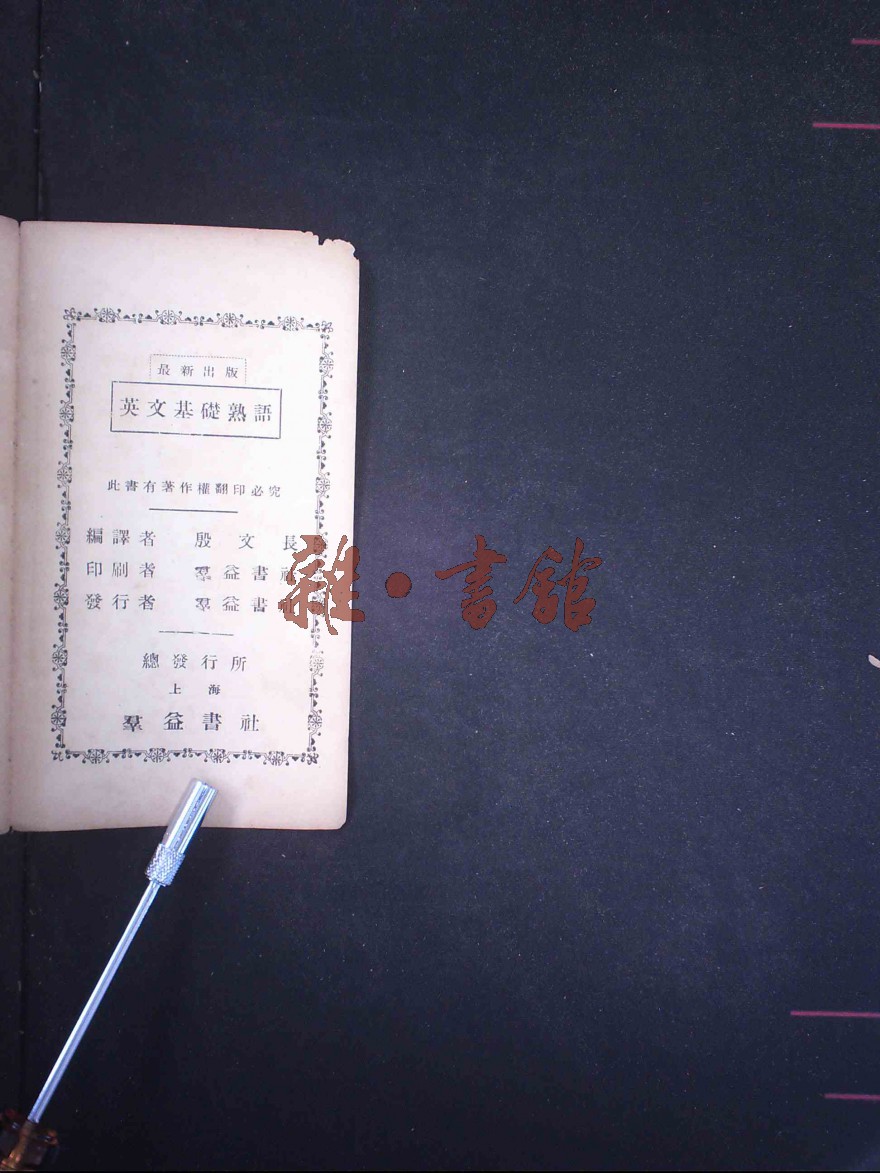 最新出版
英文基礎熟語
此書有著作權翻印必究
編譯者 殷文長
印刷者 羣益書社
發行者 羣益書社
總發行所
上海
羣益書社
雜·書館